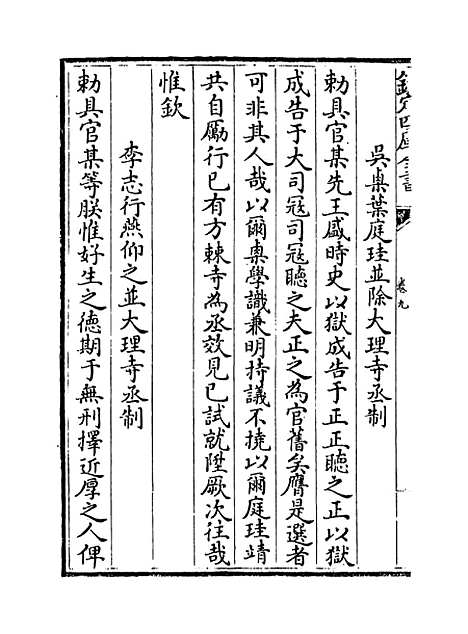 欽定四庫全書
卷九
吳㮚葉庭珪並除大理寺丞制
勅具官某先王盛時史以獄成告于正正聽之正以獄
成告于大司冦司冦聽之夫正之為官舊矣膺是選者
可非其人哉以爾㮚學識兼明持議不撓以爾庭珪靖
共自厲行已有方棘寺為丞效見已試就陞厥次往哉
惟欽
李志行燕仰之並大理寺丞制
勅具官某等朕惟好生之德期于無刑擇近厚之人俾